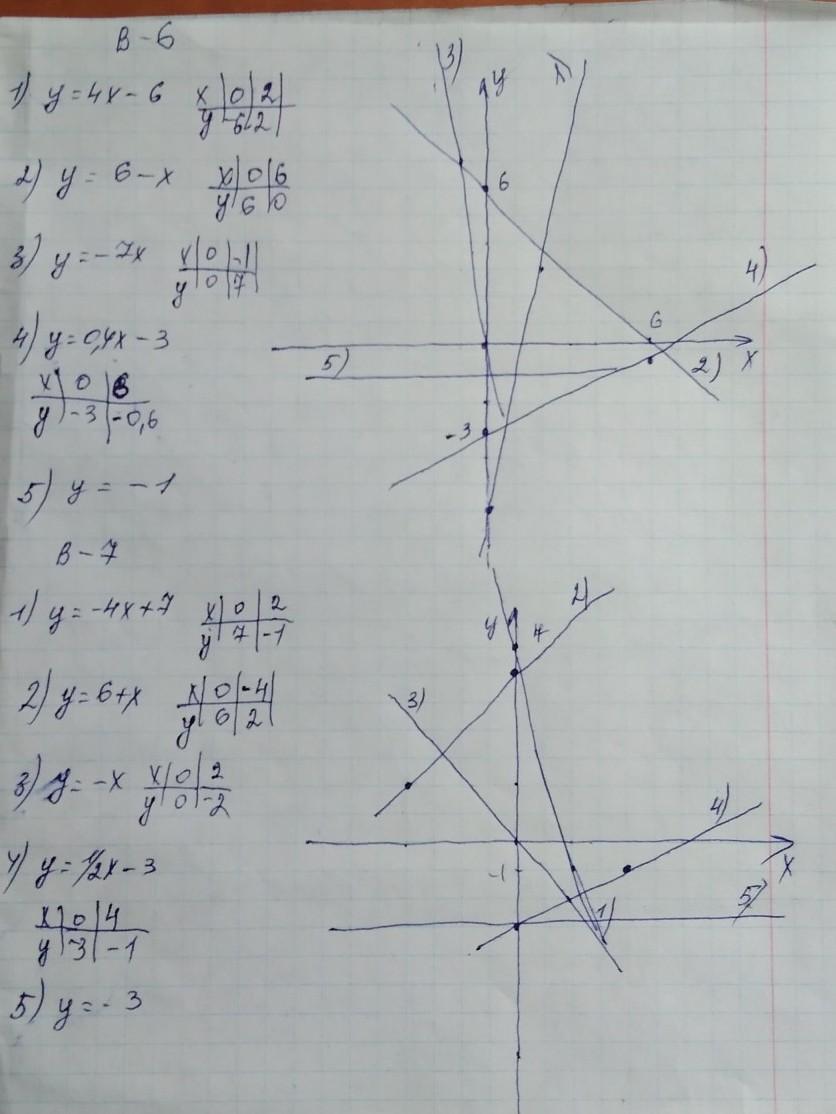 В-6
1) y=4x-6 x|0|2
y|-6|2
2) y = 6-x x|0|6
y|6|0
3) y=-7x x|0|-1
y|0|7
4) y=0,4x-3
x|0|6
y|-3|-0,6
5) y = -1
3) y 1)
6
4)
6
5) 2) x
-3
В-7
1) y=-4x+7 x|0|2
y|7|-1
2) y=6+x x|0|-4
y|6|2
3) y=-x x|0|2
y|0|-2
4) y=1/2x-3
x|0|4
y|-3|-1
5) y=-3
y 7 2)
3)
4)
x
-1
1) 5)